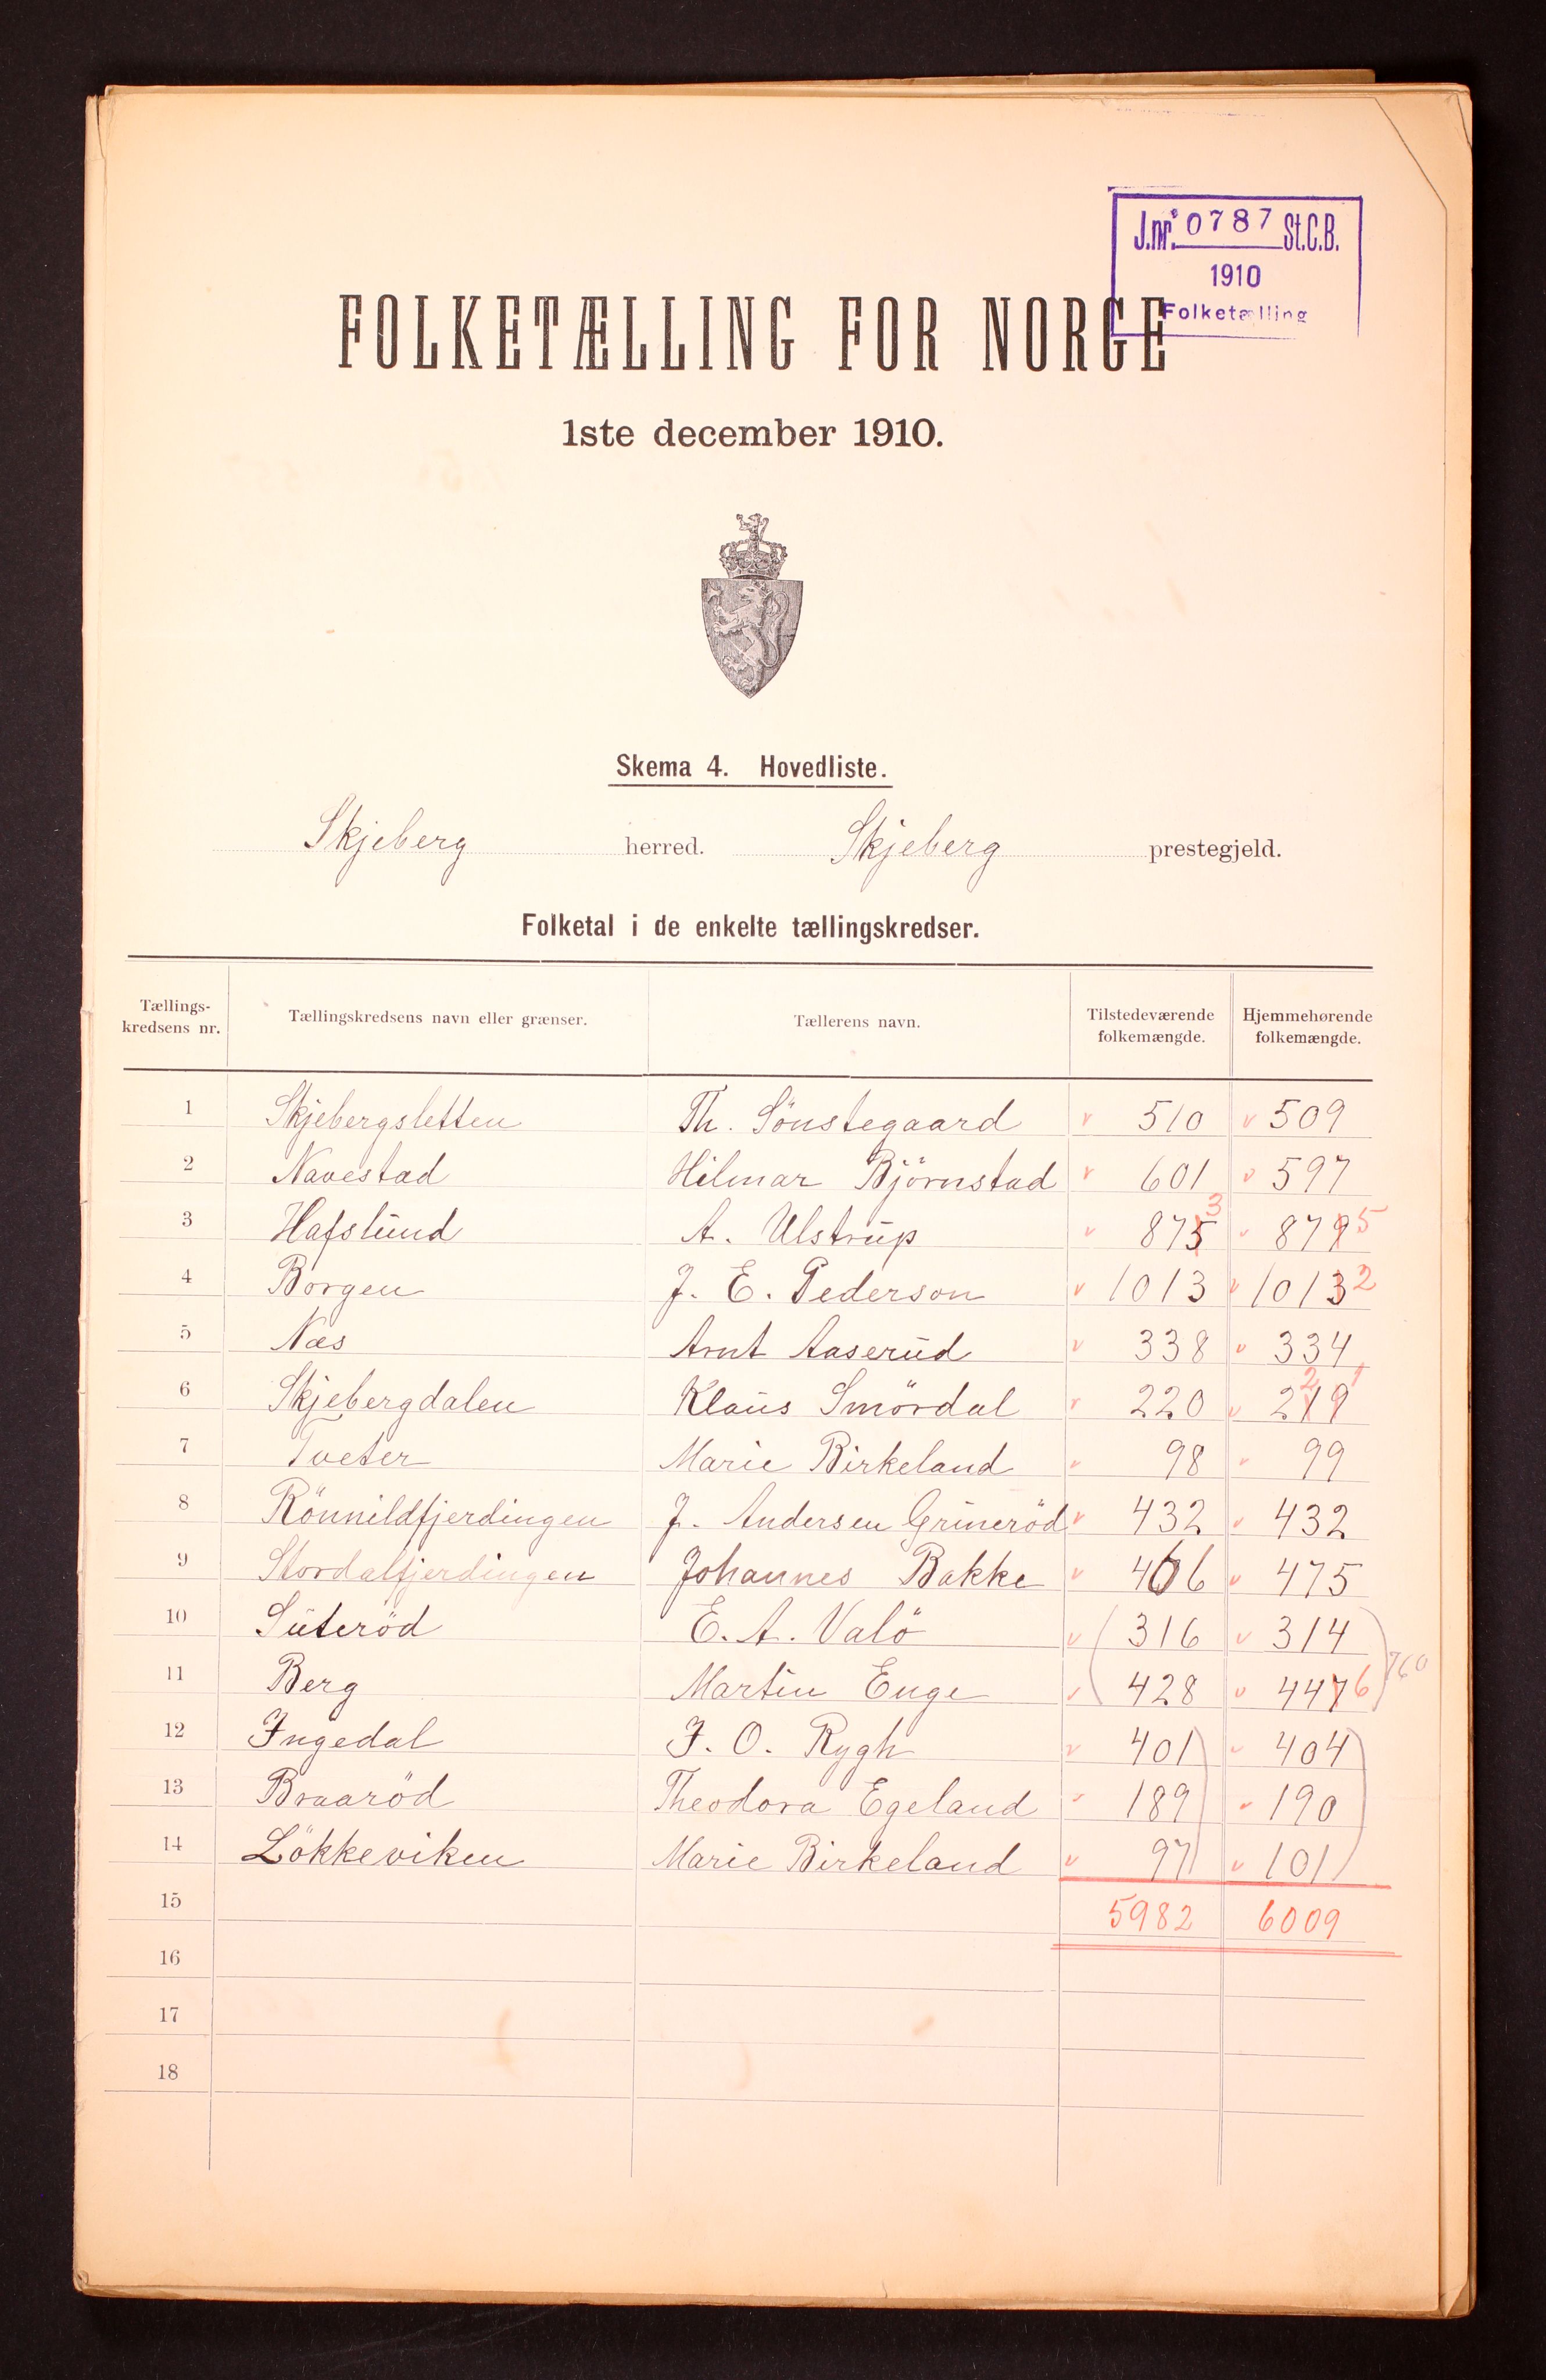 J.nr. 0787 St.C.B.
1910
Folketælling
FOLKETÆLLING FOR NORGE
1ste december 1910.
Skema 4. Hovedliste.
Skjeberg herred. Skjeberg prestegjeld.
Folketal i de enkelte tællingskredser.
Tællings-kredsens nr. Tællingskredsens navn eller grænser. Tællerens navn. Tilstedeværende folkemængde. Hjemmehørende folkemængde.
1 Skjebergsletten Th. Sönstegaard v 510 v 509
2 Navestad Hilmar Björnstad v 601 v 597
3 Hafslund A. Ulstrup v 875 3 v 879 5
4 Borgen J. E. Pederson v 1013 v 1013 2
5 Næs Arnt Aaserud v 338 v 334
6 Skjebergdalen Klaus Smördal v 220 v 219 2 1
7 Tveter Marie Birkeland v 98 v 99
8 Rönnildfjerdingen J. Andersen Grineröd v 432 v 432
9 Stordalfjerdingen Johannes Bakke v 466 v 475
10 Suteröd E. A. Valö v 316 v 314
760
11 Berg Martin Enge v 428 v 447 6
12 Ingedal J. O. Rygh v 401 v 404
13 Braaröd Theodora Egeland v 189 v 190
14 Lökkeviken Marie Birkeland v 97 v 101
15 5982 6009
16
17
18